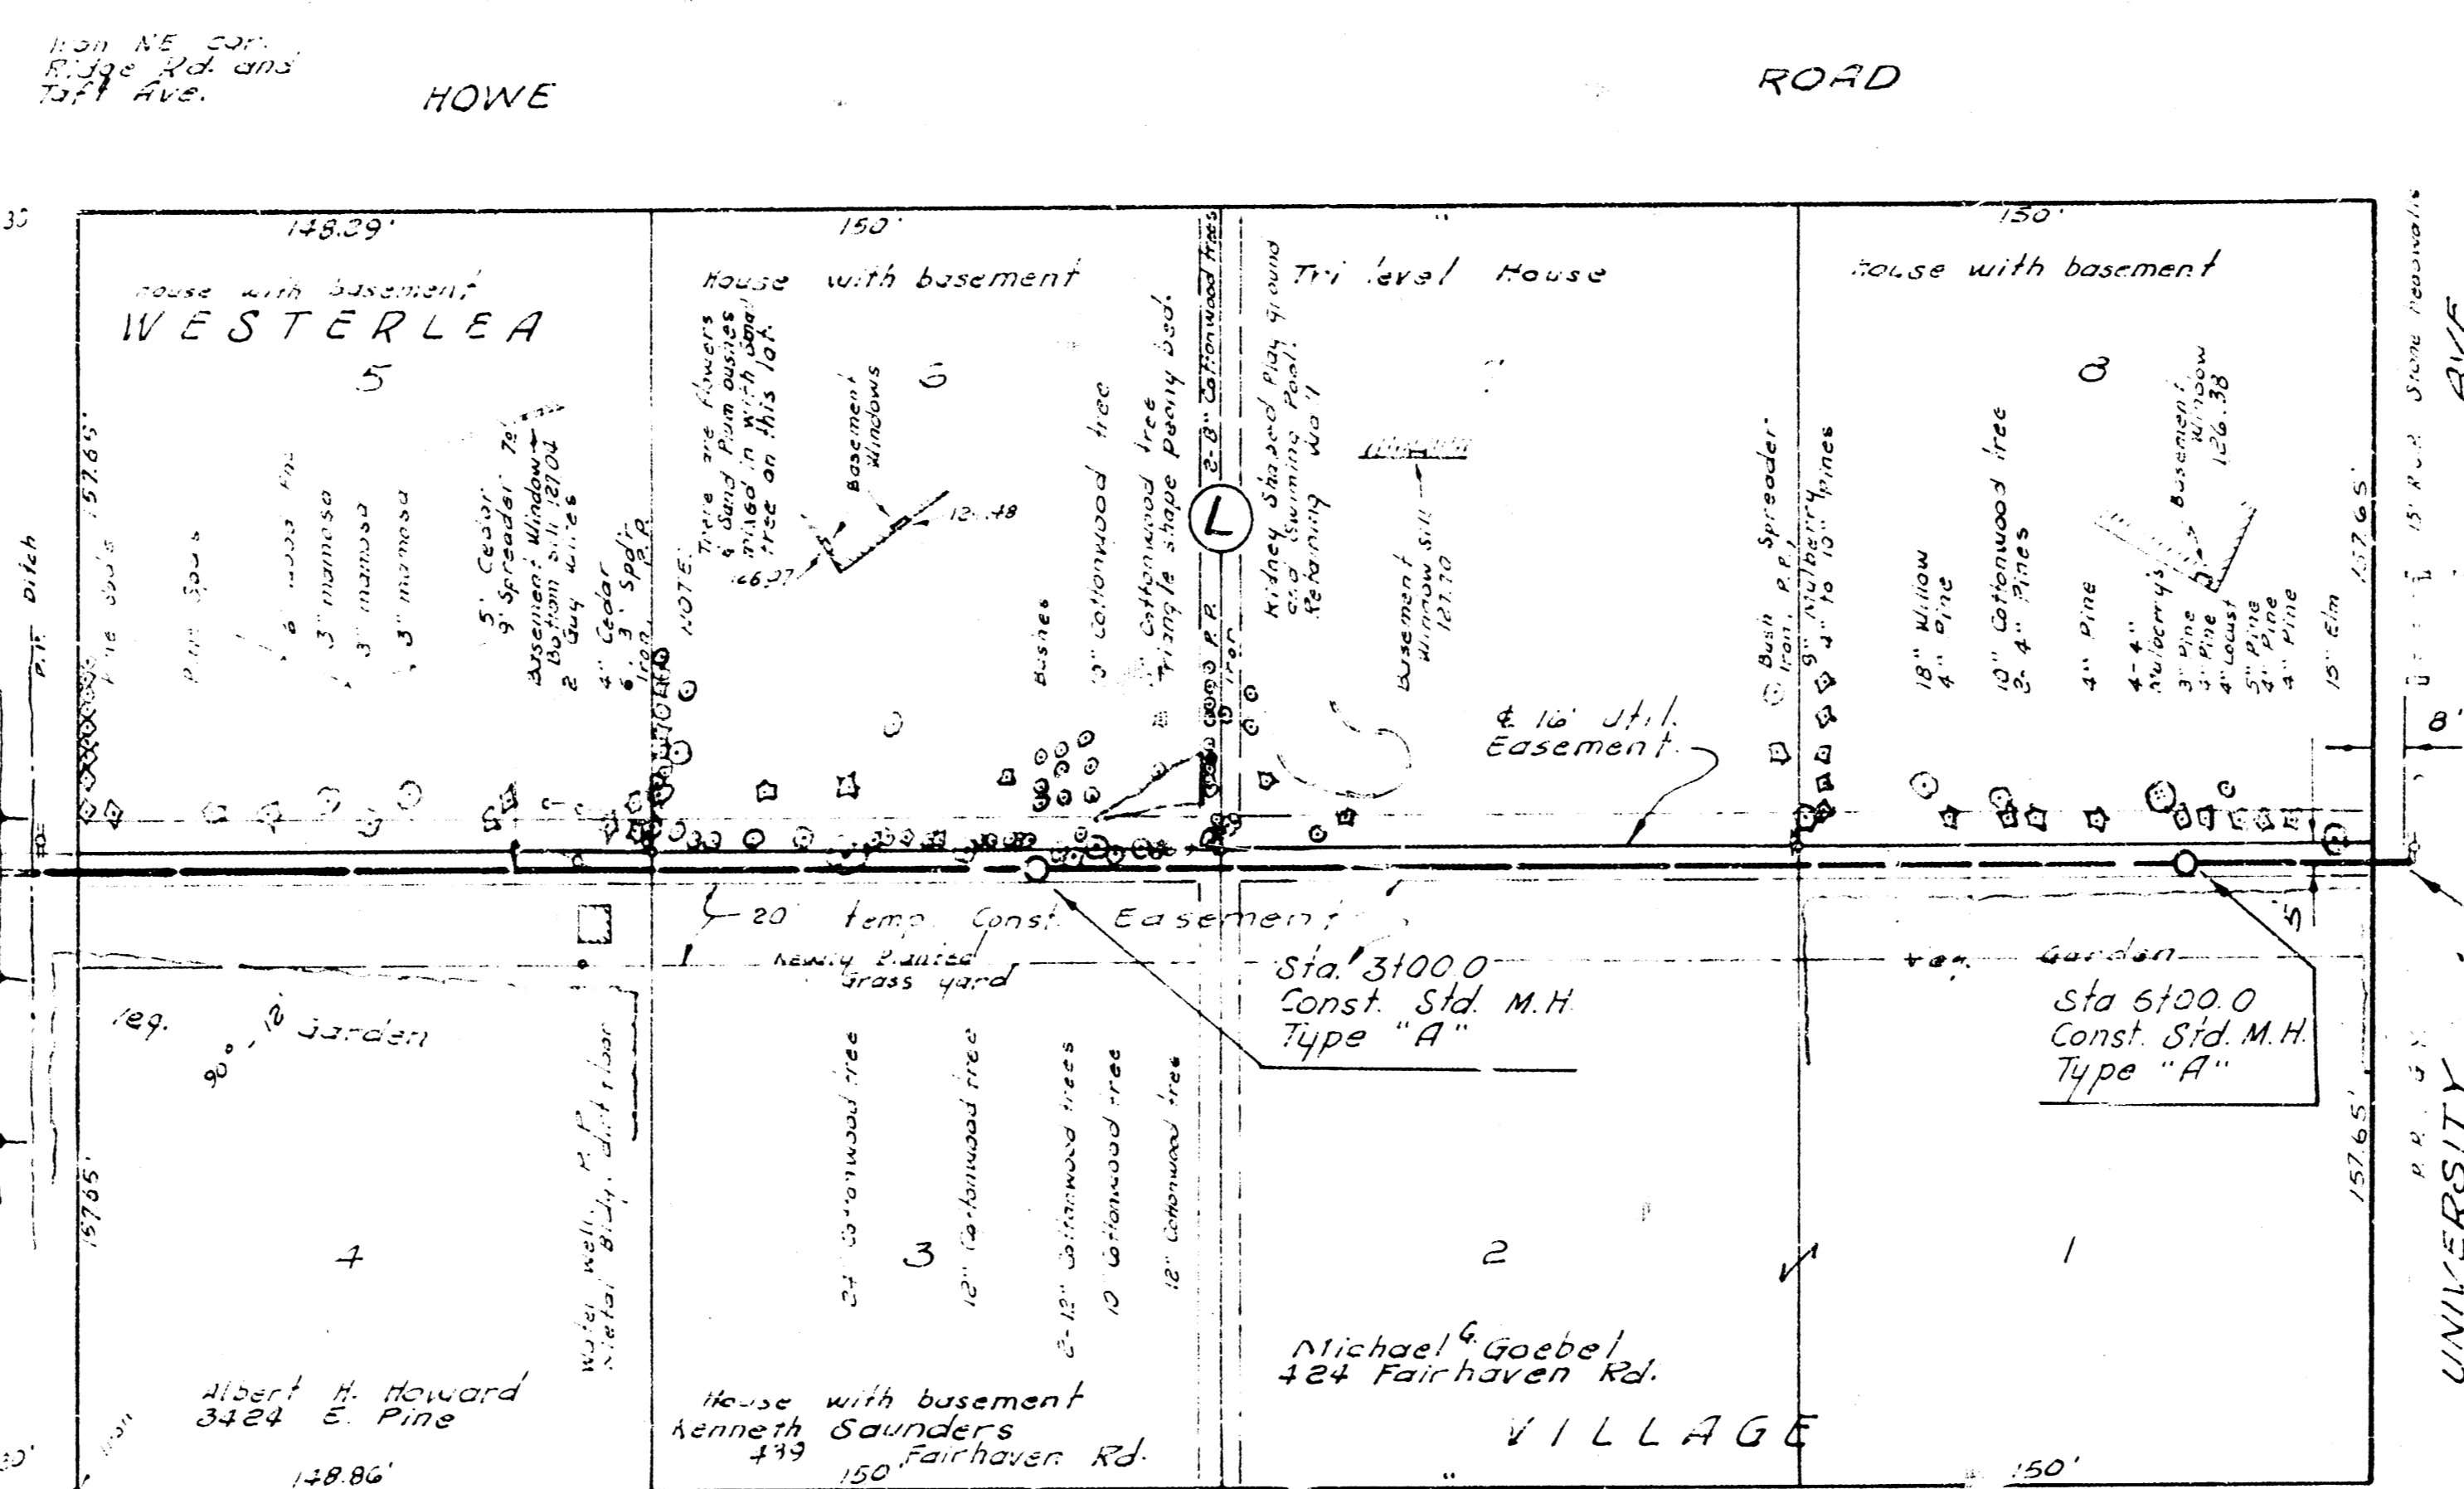 Iron NE cor.
Ridge Rd. and
Taft Ave.
HOWE
ROAD
148.29'
150'
"
150'
House with basement
WESTERLEA
5
House with basement
6
Tri level House
House with basement
8
157.65'
Ditch
3" mamosa
3" mamosa
3" mamosa
5' Cedar
9' Spreader
Basement Window
Bottom sill 127.04
2 Guy Wires
4" Cedar
6, 3' Spdr.
Iron, P.P.
NOTE:
There are flowers
& Sand Plum bushes
mixed in with small
tree on this lot.
Basement
Windows
Bushes
10" Cottonwood tree
Cottonwood tree
Triangle shape Peony bed.
2-8" Cottonwood trees
L
P.P.
Iron
Kidney Shaped Play ground
and Swimming Pool.
Retaining Wall
Basement
Window Sill
127.70
Bush Spreader
Iron, P.P.,
9" Mulberry
4" to 10" Pines
18" Willow
4" Pine
10" Cottonwood tree
2-4" Pines
4" Pine
4-4"
Mulberry's
3" Pine
4" Pine
4" Locust
5" Pine
4" Pine
4" Pine
15" Elm
Basement
Window
126.38
157.65'
8'
℄ 16' Util.
Easement
20' Temp. Const. Easement
Newly Planted
Grass yard
Veg. Garden
90°-12'
Veg. Garden
5'
Sta. 3+00.0
Const. Std. M.H.
Type "A"
Sta 6+00.0
Const. Std. M.H.
Type "A"
157.65'
Water well, P.P.
Metal Bldg. dirt floor
24" Cottonwood tree
12" Cottonwood tree
2-12" Cottonwood trees
10" Cottonwood tree
12" Cottonwood tree
157.65'
4
3
2
1
Albert H. Howard
3424 E. Pine
House with basement
Kenneth Saunders
439 Fairhaven Rd.
Michael G. Goebel
424 Fairhaven Rd.
VILLAGE
Iron
148.86'
150'
"
150'
UNIVERSITY
AVE